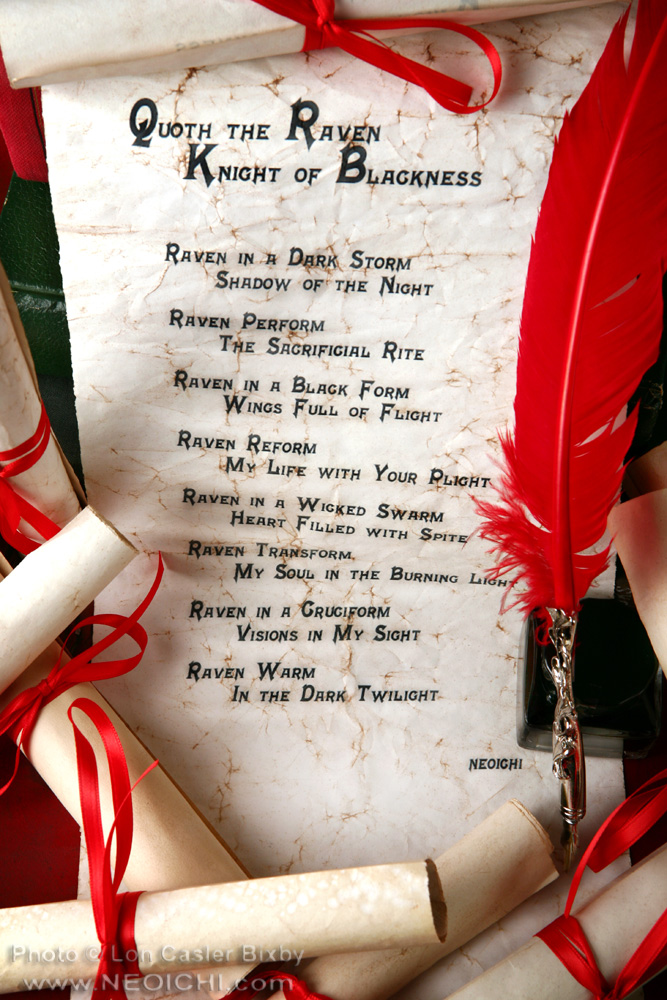 Quoth the Raven
Knight of Blackness
Raven in a Dark Storm
Shadow of the Night
Raven Perform
The Sacrificial Rite
Raven in a Black Form
Wings Full of Flight
Raven Reform
My Life with Your Plight
Raven in a Wicked Swarm
Heart Filled with Spite
Raven Transform
My Soul in the Burning Light
Raven in a Cruciform
Visions in My Sight
Raven Warm
In the Dark Twilight
NEOICHI
Photo © Lon Casler Bixby
www.NEOICHI.com